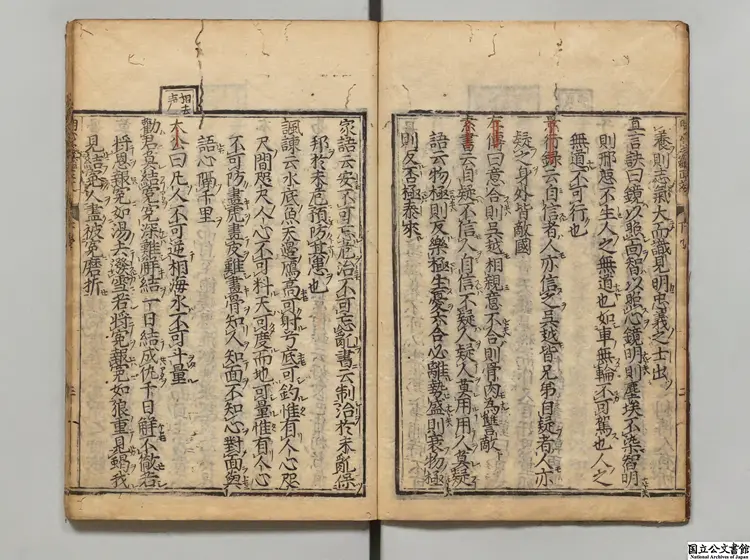 養則志氣大而識見明忠義之士出
直言訣曰鏡以照面智以照心鏡明則塵埃不染智明
則邪惡不生人之無道也如車無輪不可駕也人之
無道不可行也
景行錄云自信者人亦信之吳越皆兄弟自疑者人亦
疑之身外皆敵國
左傳曰意合則吳越相親意不合則骨肉為讐敵
素書云自疑不信人自信不疑人疑人莫用用人莫疑
語云物極則反樂極生憂六合必離勢盛則衰物極
則反否極泰來
家語云安不可忘危治不可忘亂書云制治於未亂保
邦於未危預防其患也
諷諫云水底魚天邊鴈高可射兮底可釣惟有人心咫
尺間咫尺人心不可料天可度而地可量惟有人心
不可防畫虎畫皮難畫骨知人知面不知心對面與
語心隔千里
太公曰凡人不可逆相海水不可斗量
勸君莫結冤冤深難解結一日結成仇千日解不徹若
將恩報冤如湯去潑雪若將冤報冤如狼重見蝎我
見結冤人盡被冤磨折
国立公文書館
National Archives of Japan